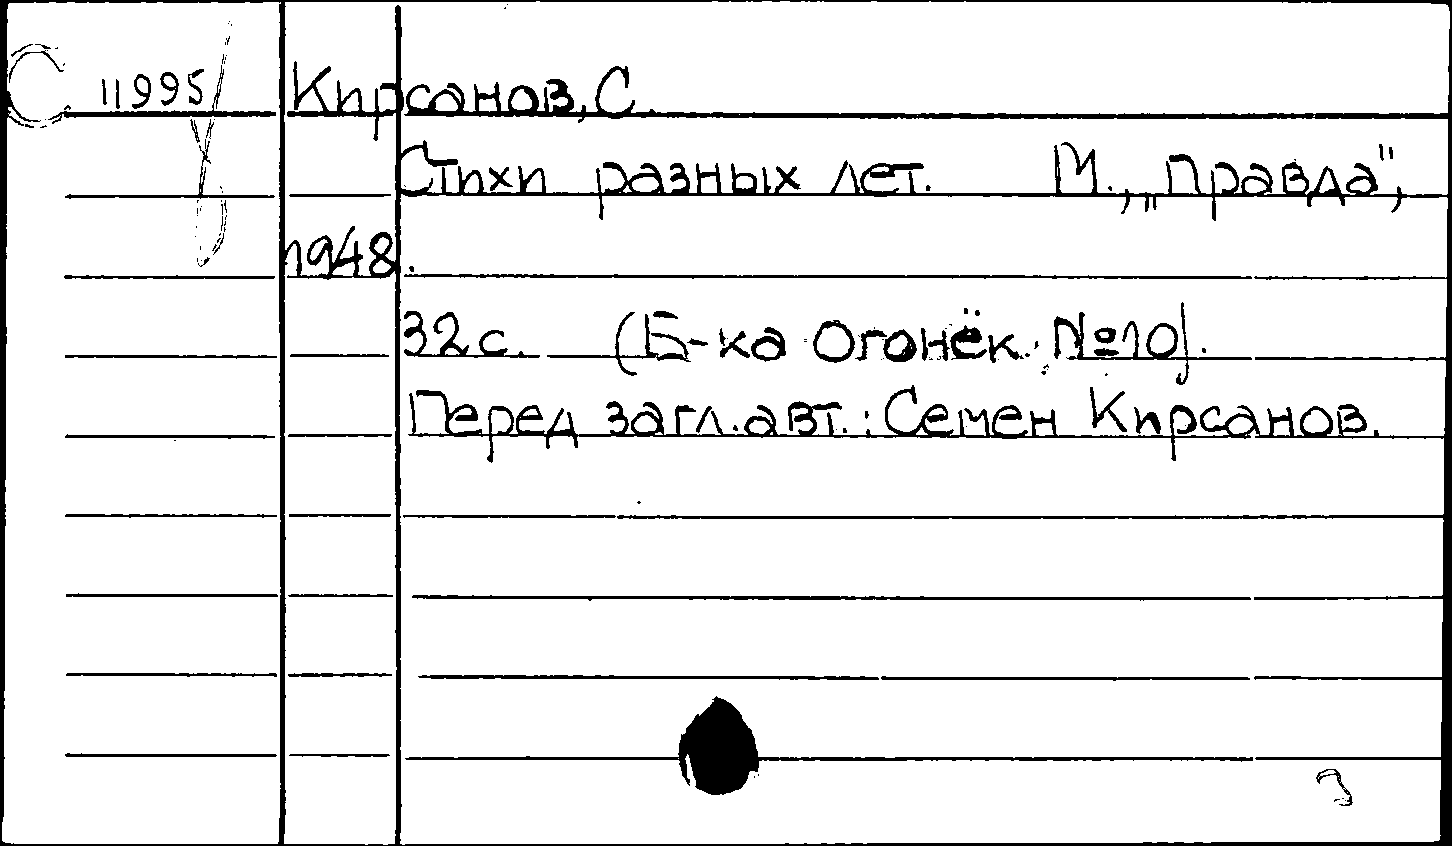 С 11995 Кирсанов, С.
Стихи разных лет. М., „Правда",
1948.
32 с. (Б-ка Огонёк. №10).
Перед загл. авт.: Семен Кирсанов.
3